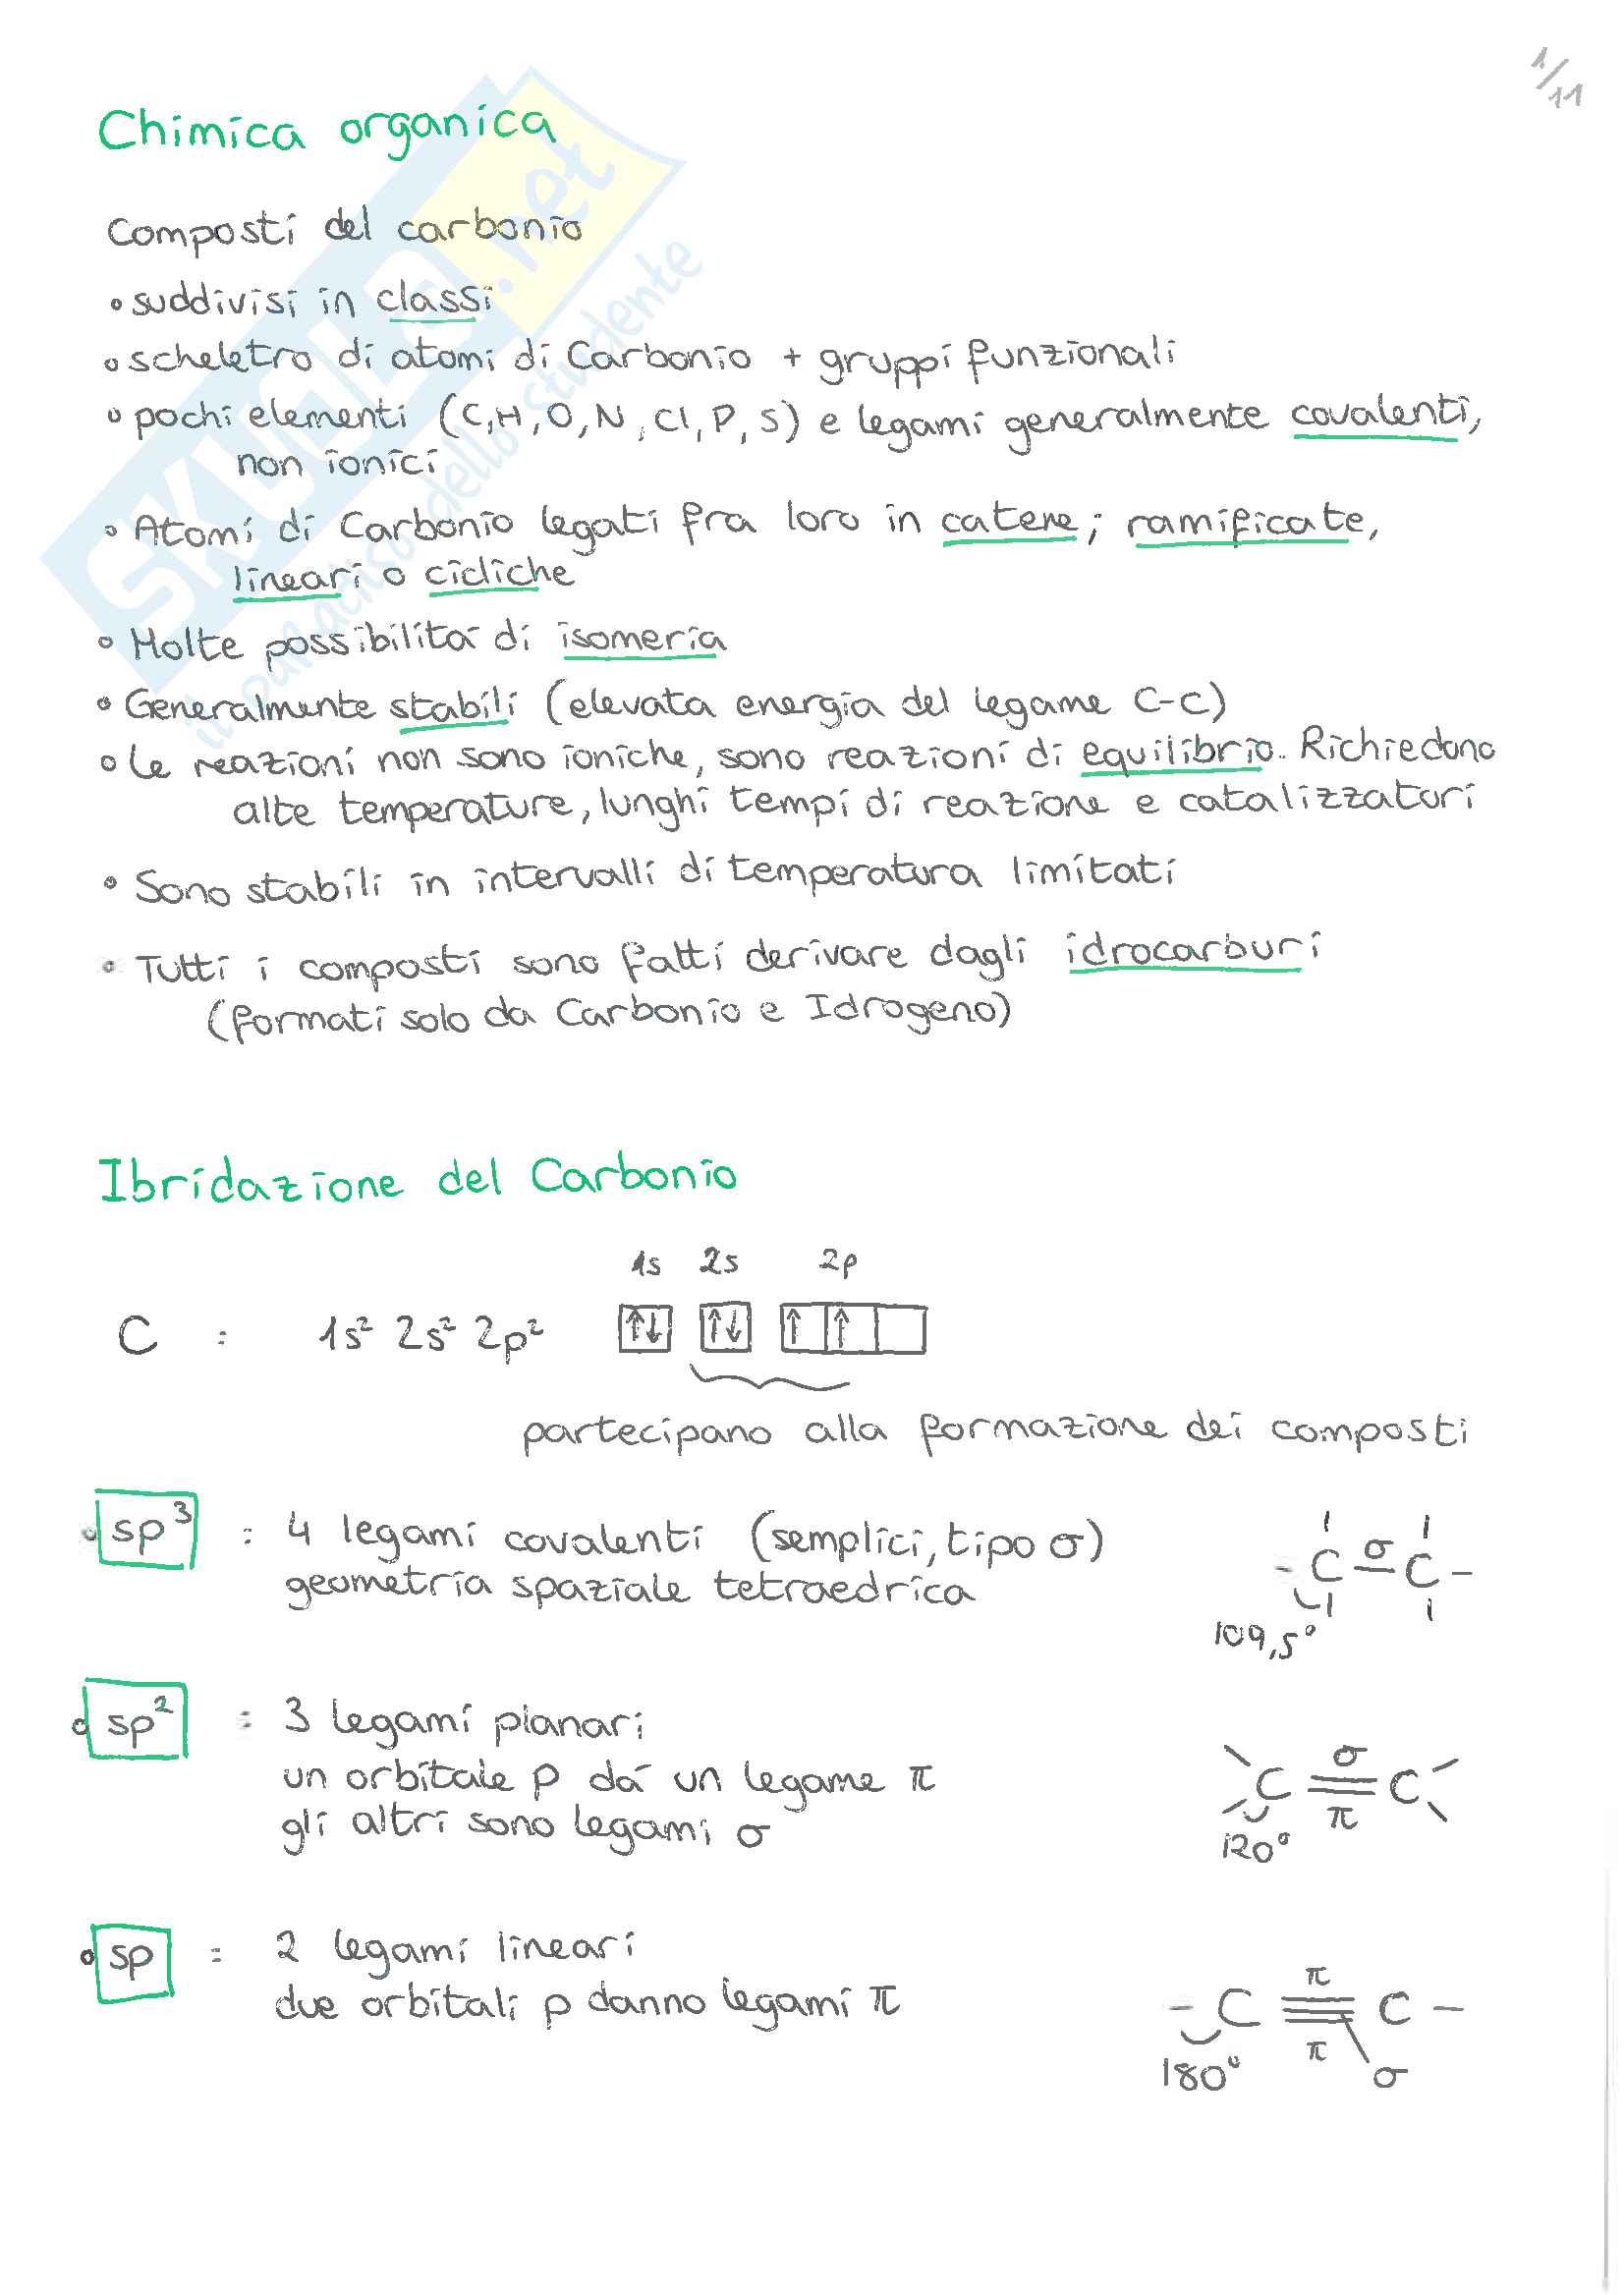 1/11
Chimica organica
Composti del carbonio
• suddivisi in classi
• scheletro di atomi di Carbonio + gruppi funzionali
• pochi elementi (C, H, O, N, Cl, P, S) e legami generalmente covalenti,
non ionici
• Atomi di Carbonio legati fra loro in catene; ramificate,
lineari o cicliche
• Molte possibilitá di isomeria
• Generalmente stabili (elevata energia del legame C-C)
• Le reazioni non sono ioniche, sono reazioni di equilibrio. Richiedono
alte temperature, lunghi tempi di reazione e catalizzatori
• Sono stabili in intervalli di temperatura limitati
• Tutti i composti sono fatti derivare dagli idrocarburi
(formati solo da Carbonio e Idrogeno)
Ibridazione del Carbonio
1s 2s 2p
C : 1s² 2s² 2p² ↑↓ ↑↓ ↑ ↑
partecipano alla formazione dei composti
• sp³ : 4 legami covalenti (semplici, tipo σ)
geometria spaziale tetraedrica
- C - C -
σ
109,5°
• sp² : 3 legami planari
un orbitale p dá un legame π
gli altri sono legami σ
σ
C = C
π
120°
• sp : 2 legami lineari
due orbitali p danno legami π
π
- C ≡ C -
π
σ
180°
SKUOLA.net
il paradiso dello studente